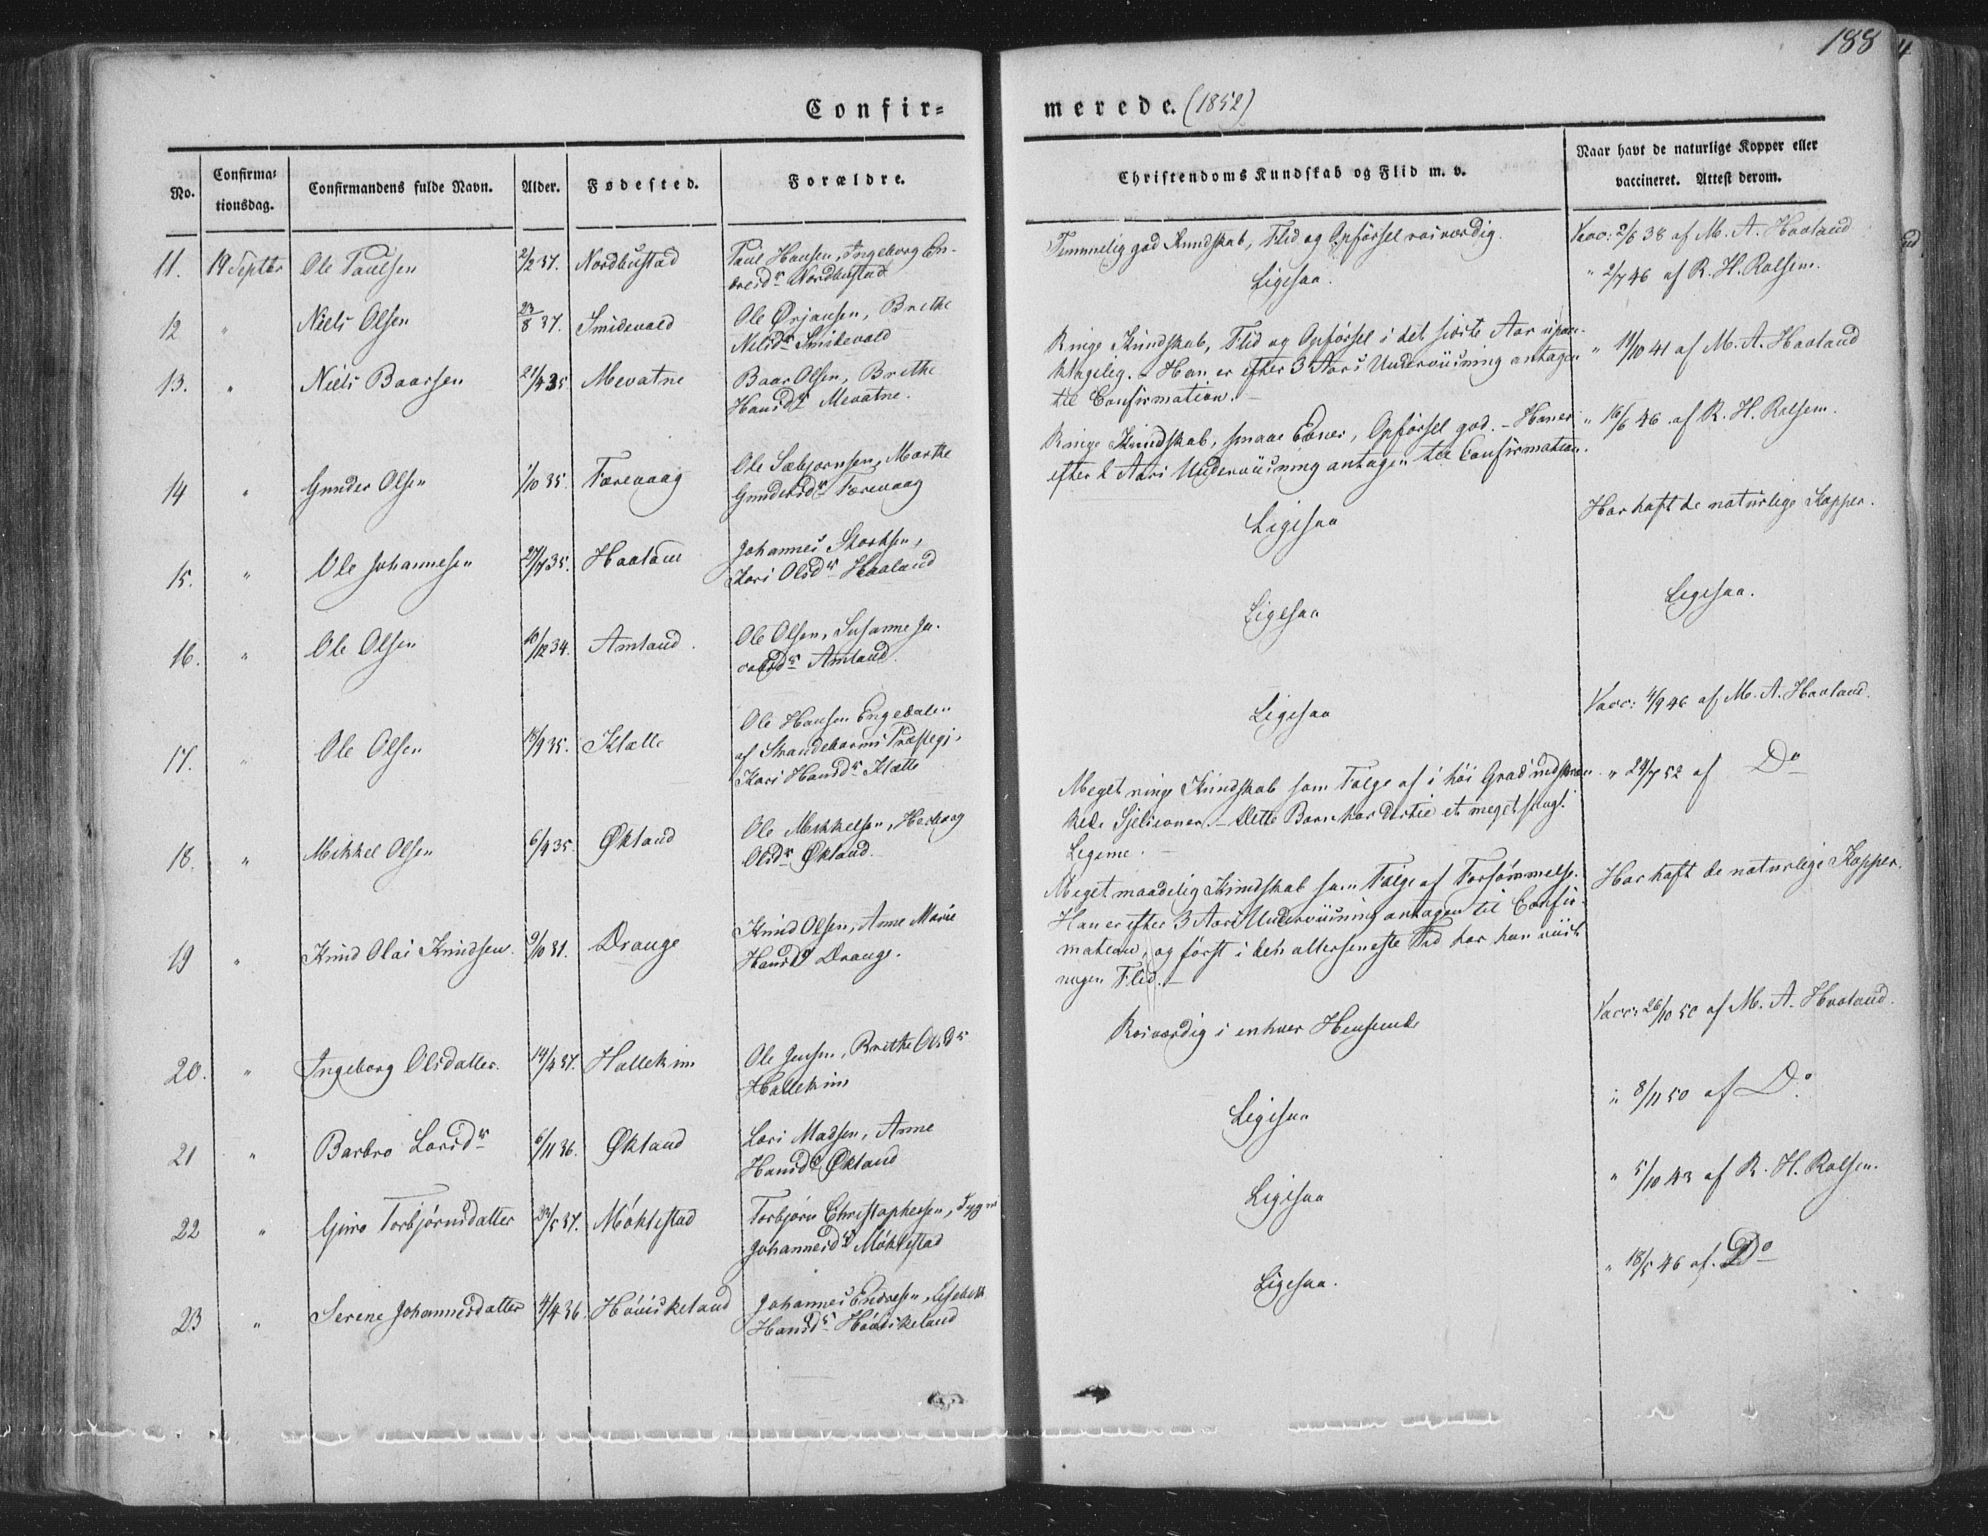 188
Confir=
merede. (1852)
No.
Confirma-
tionsdag.
Confirmandens fulde Navn.
Alder.
Fødested.
Forældre.
Christendoms Kundskab og Flid m. v.
Naar havt de naturlige Kopper eller
vaccineret. Attest derom.
11. 19 Septbr Ole Paulsen 2/2 37. Nordhustad
Paul Hansen, Ingeborg En-
dresdr Nordhustad
Temmelig god Kundskab, Flid og Opførsel rosværdig.
Vacc: 2/6 38 af M. A. Haaland
12 " Niels Olsen 23/8 37. Smidevold
Ole Ørjansen, Brithe
Nilsdr Smidevold
Ligesaa.
" 2/7 46 af R. H. Rolsem.
13. " Niels Baarsen 21/4 35 Mevatne
Baar Olsen, Brithe
Hansdr Mevatne.
Ringe Kundskab, Flid og Opførsel i det sidste Aar upaa-
klagelig. - Han er efter 3 Aars Underviisning antagen
til Confirmation. -
" 19/10 41 af M. A. Haaland
14 " Gunder Olsen 1/10 35. Færevaag
Ole Sæbjørnsen, Marthe
Gundersdr Færevaag
Ringe Kundskab, smaae Evner, Opførsel god. - Han er
efter 2 Aars Underviisning antagen til Confirmation.
" 16/6 46 af R. H. Rolsem.
15. " Ole Johannesen 27/7 35. Haaland
Johannes
Kari Olsdr Haaland
Ligesaa
Har haft de naturlige Kopper.
16. " Ole Olsen 10/12 34. Amland.
Ole Olsen, Susanne
Amland.
Ligesaa
Ligesaa.
17. " Ole Olsen 18/9 35. Klætte
Ole Hansen Engedalen
af Strandebarms Præstegj.
Kari Hansdr Klætte
Ligesaa
Vacc: 4/9 46 af M. A. Haaland.
18. " Mikkel Olsen 6/4 35. Økland
Ole Mikkelsen,
Olsdr Økland.
Meget ringe Kundskab som Følge af i høi Grad indskræn-
kede Sjelsevner. - Dette Barn har et meget svagt
Legeme. -
" 24/7 52 af Do
19 " Knud Olai Knudsen. 9/10 31. Drange
Knud Olsen, Anne Marie
Hansdr Drange.
Meget maadelig Kundskab som Følge af Forsømmelse.
Han er efter 3 Aars Underviisning antagen til Confir-
mation, og først i den allerseneste Tid har han viist
nogen Flid. -
Har haft de naturlige Kopper.
20. " Ingeborg Olsdatter. 14/4 37. Hallekim
Ole Jensen, Brithe Olsdr
Hallekim
Rosværdig i enhver Henseende
Vacc: 26/10 50 af M. A. Haaland.
21 " Barbro Larsdr 6/11 36. Økland
Lars Madsen, Anne
Hansdr Økland
Ligesaa
" 8/11 50 af Do
22 " Guro Torbjørnsdatter 23/5 37. Møklestad
Torbjørn Christophersen,
Johannesdr Møklestad
Ligesaa
" 5/10 43 af R. H. Rolsem.
23 " Serene Johannesdatter 4/4 36. Høviskeland
Johannes Endresen, Lisebeth
Hansdr Høviskeland
Ligesaa.
" 18/5 46 af Do